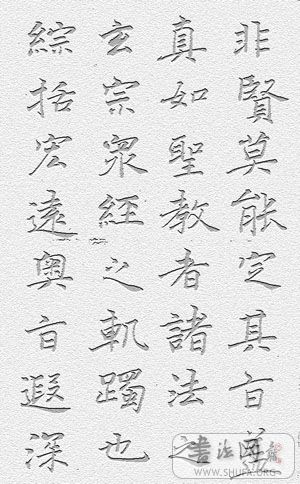 非賢莫能定其旨蓋
真如聖教者諸法之
玄宗眾經之軌躅也
綜括宏遠奧旨遐深
WWW.SHUFA.ORG